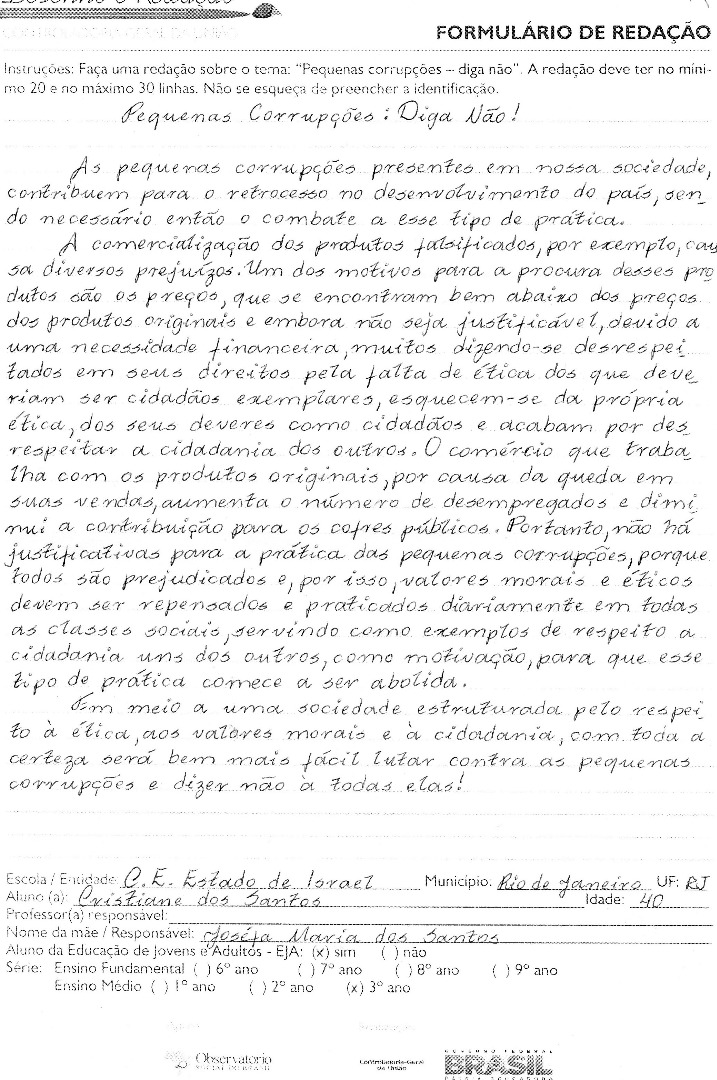 Desenho e Redação
CONTROLADORIA-GERAL DA UNIÃO
FORMULÁRIO DE REDAÇÃO
Instruções: Faça uma redação sobre o tema: "Pequenas corrupções – diga não". A redação deve ter no míni-
mo 20 e no máximo 30 linhas. Não se esqueça de preencher a identificação.
Pequenas Corrupções: Diga Não!
As pequenas corrupções presentes em nossa sociedade,
contribuem para o retrocesso no desenvolvimento do país, sen
do necessário então o combate a esse tipo de prática.
A comercialização dos produtos falsificados, por exemplo, cau
sa diversos prejuízos. Um dos motivos para a procura desses pro
dutos são os preços, que se encontram bem abaixo dos preços
dos produtos originais e embora não seja justificável, devido a
uma necessidade financeira, muitos dizendo-se desrespei_
tados em seus direitos pela falta de ética dos que deve_
riam ser cidadãos exemplares, esquecem-se da própria
ética, dos seus deveres como cidadãos e acabam por des_
respeitar a cidadania dos outros. O comércio que traba_
lha com os produtos originais, por causa da queda em
suas vendas, aumenta o número de desempregados e dimi_
nui a contribuição para os cofres públicos. Portanto, não há
justificativas para a prática das pequenas corrupções, porque
todos são prejudicados e, por isso, valores morais e éticos
devem ser repensados e praticados diariamente em todas
as classes sociais, servindo como exemplos de respeito a
cidadania uns dos outros, como motivação, para que esse
tipo de prática comece a ser abolida.
Em meio a uma sociedade estruturada pelo respei_
to à ética, aos valores morais e à cidadania, com toda a
certeza será bem mais fácil lutar contra as pequenas
corrupções e dizer não à todas elas!
Escola / Entidade: C.E. Estado de Israel Município: Rio de Janeiro UF: RJ
Aluno (a): Cristiane dos Santos Idade: 40
Professor(a) responsável:
Nome da mãe / Responsável: Joséfa Maria dos Santos
Aluno da Educação de Jovens e Adultos - EJA: (x) sim ( ) não
Série: Ensino Fundamental ( ) 6º ano ( ) 7º ano ( ) 8º ano ( ) 9º ano
Ensino Médio ( ) 1º ano ( ) 2º ano (x) 3º ano
Observatório
SOCIAL DO BRASIL
Controladoria-Geral
da União
GOVERNO FEDERAL
BRASIL